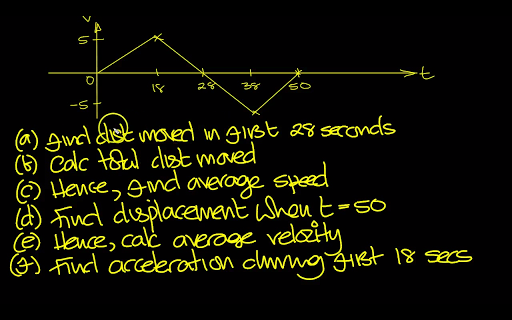 v
5
0
18
28
38
50
t
-5
(a) Find dist moved in first 28 seconds
(b) Calc total dist moved
(c) Hence, find average speed
(d) Find displacement when t = 50
(e) Hence, calc average velocity
(f) Find acceleration during first 18 secs